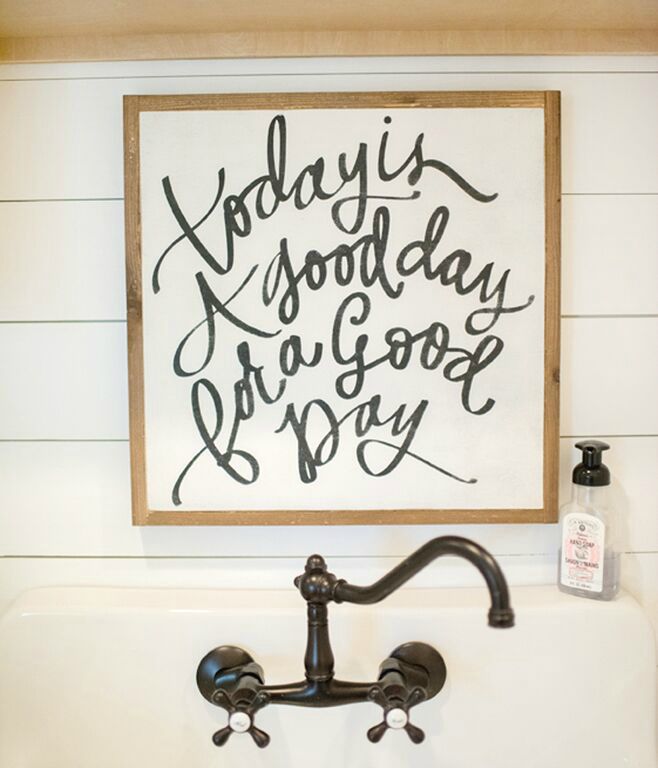 today is
A good day
for a Good
Day
HAND SOAP
SAVON À MAINS